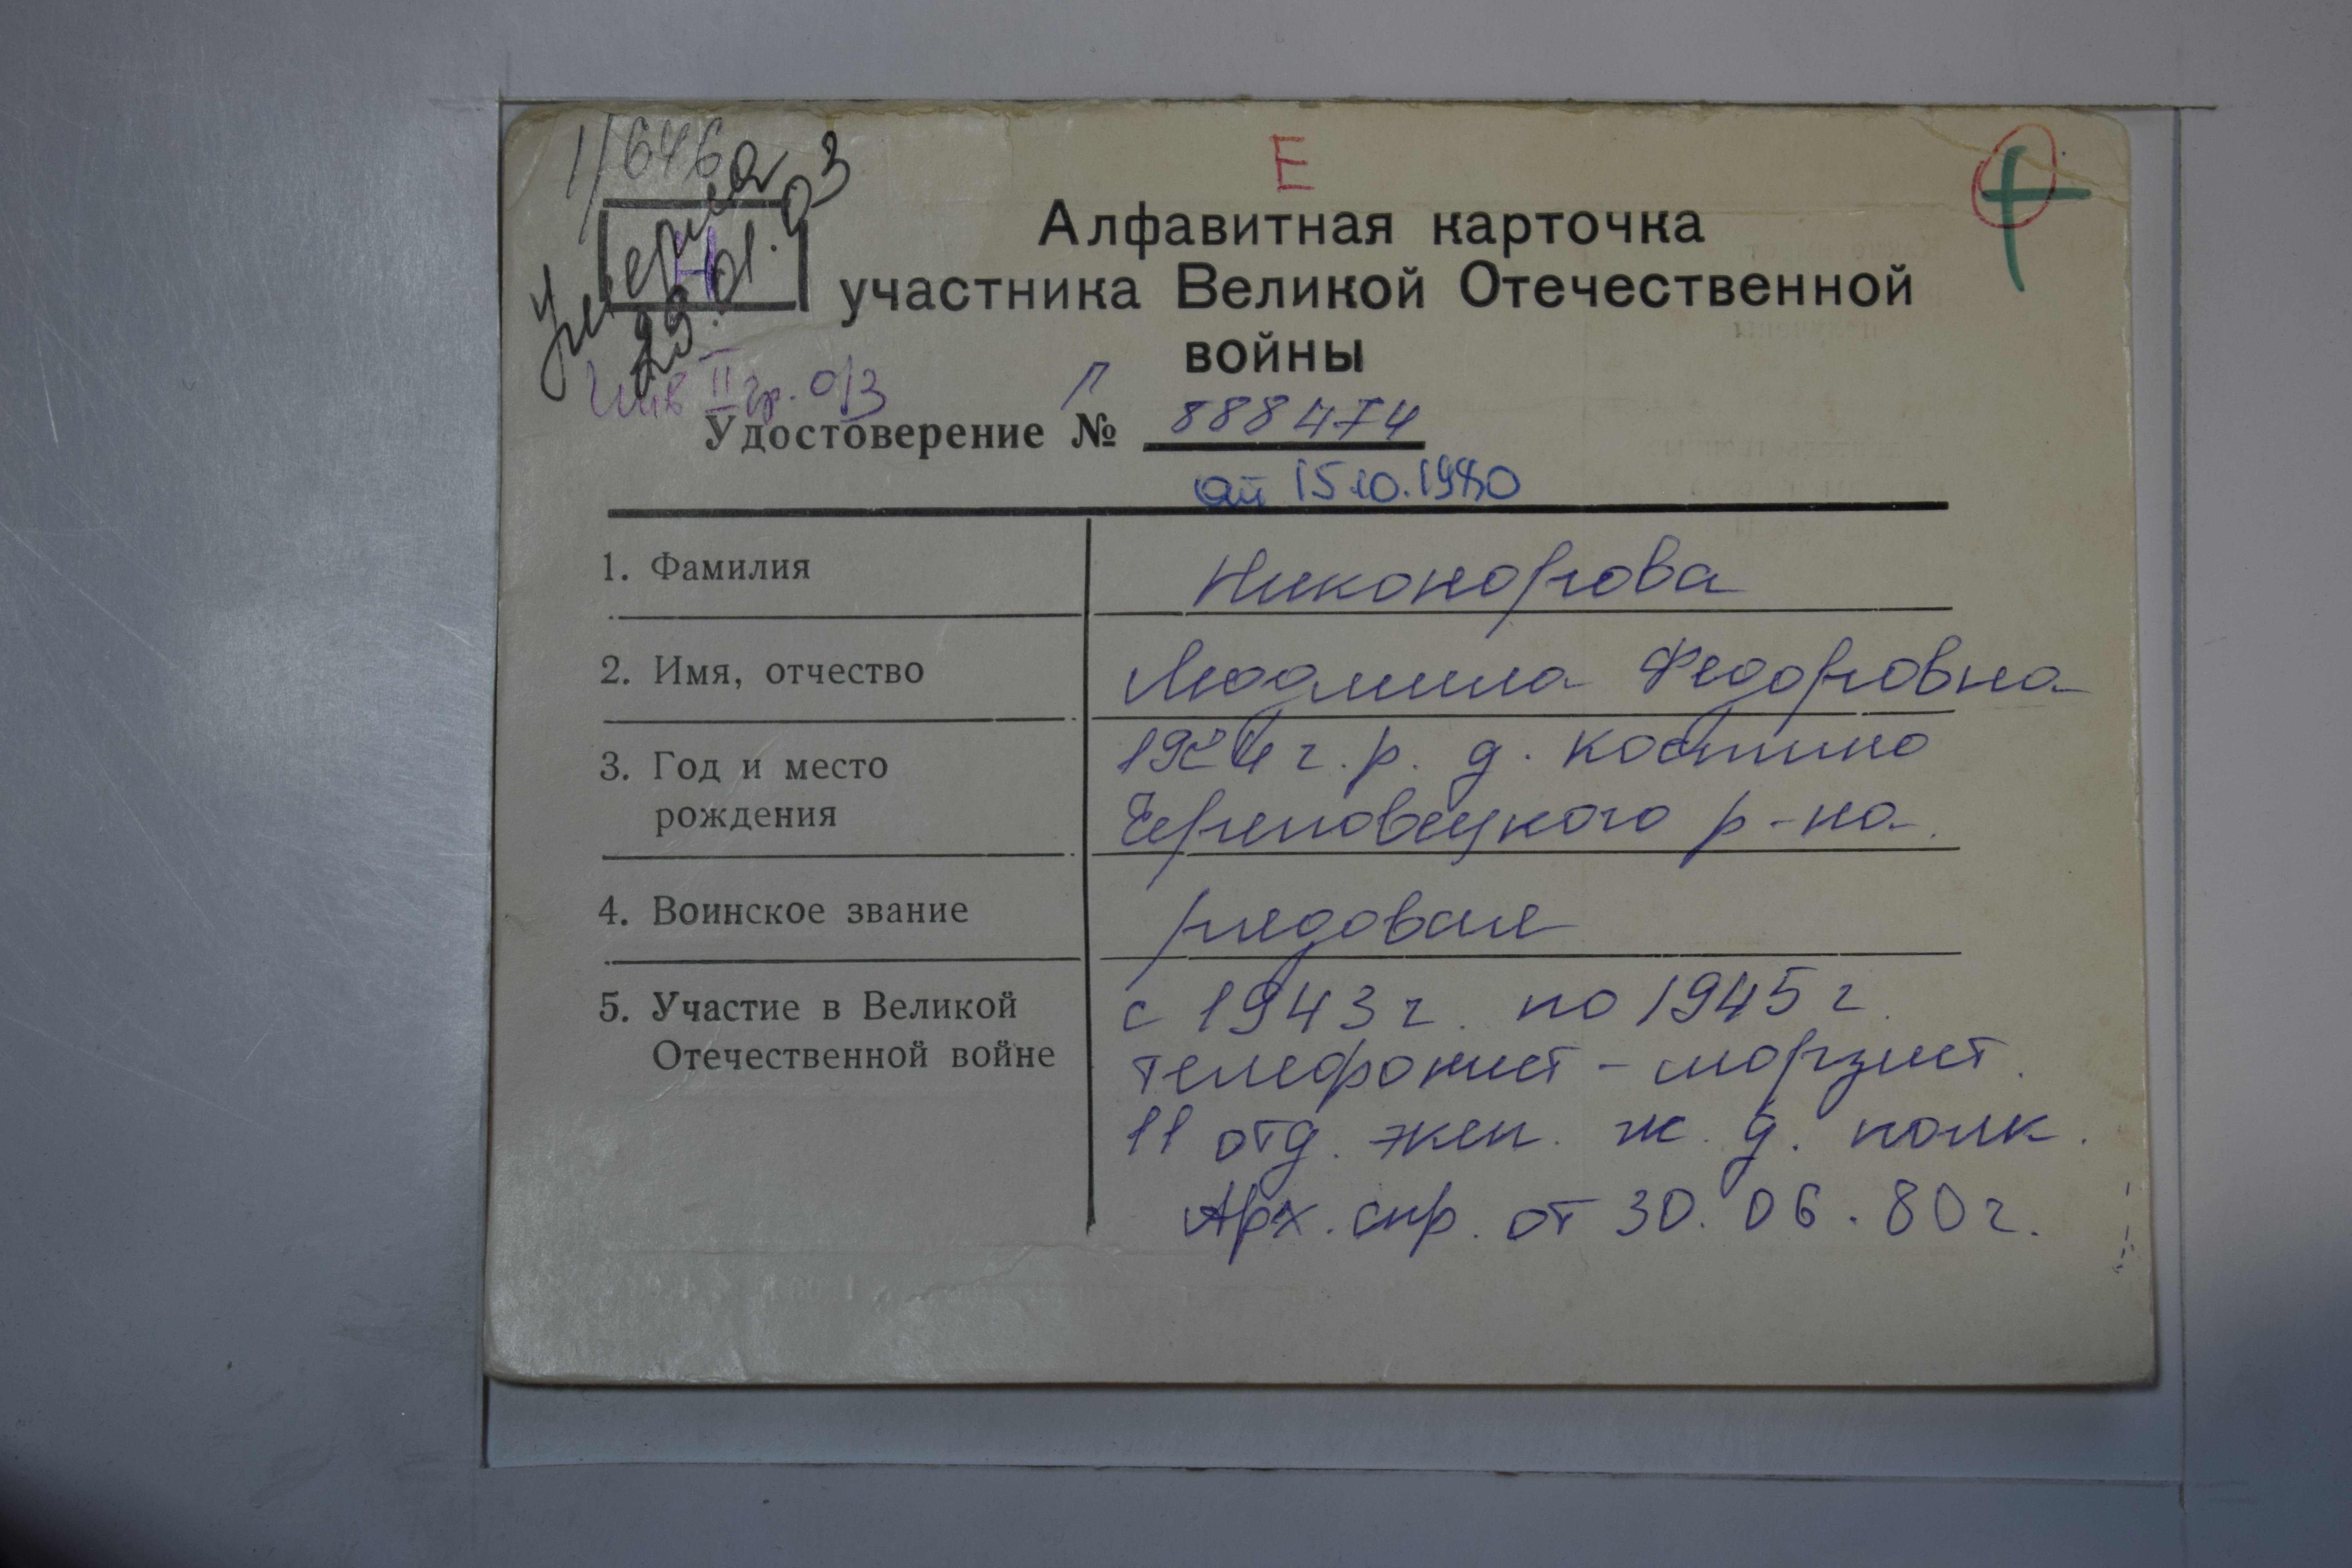 1/646
Е
Умерла
29.01.03
Н
Алфавитная карточка
участника Великой Отечественной
войны
Инв II гр. о/з
Удостоверение № Г 888474
от 15.10.1980
1. Фамилия Никонорова
2. Имя, отчество Людмила Федоровна
3. Год и место 1924 г.р. д. Костино
рождения Череповецкого р-на.
4. Воинское звание рядовая
5. Участие в Великой с 1943 г. по 1945 г.
Отечественной войне телефонист - морзист.
11 отд. эксп. ж. д. полк.
Арх. спр. от 30.06.80 г.